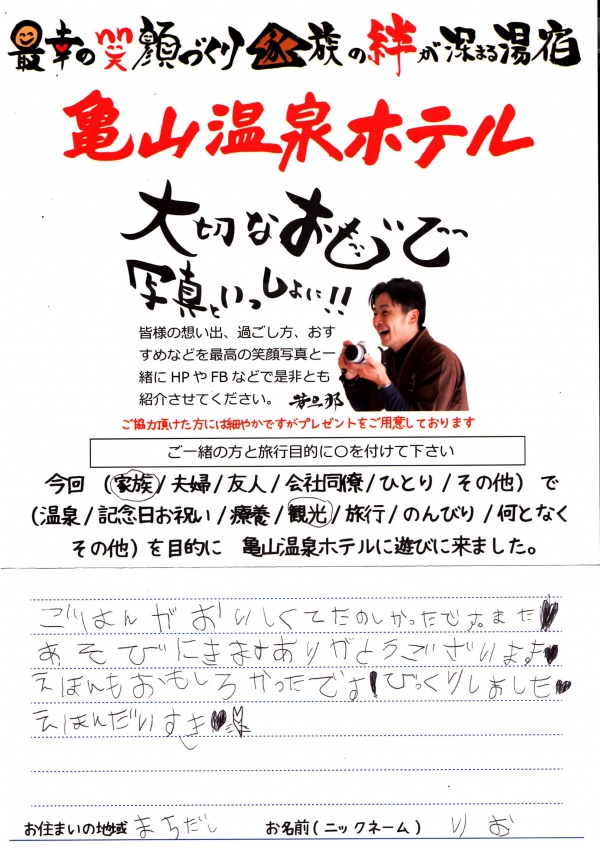 最幸の笑顔づくり 家族の絆が深まる湯宿
亀山温泉ホテル
大切なおもいで
写真といっしょに!!
皆様の想い出、過ごし方、おす
すめなどを最高の笑顔写真と一
緒に HP や FB などで是非とも
紹介させてください。 若旦那
ご協力頂けた方には細やかですがプレゼントをご用意しております
ご一緒の方と旅行目的に〇を付けて下さい
今回 (家族/夫婦/友人/会社同僚/ひとり/その他) で
(温泉/記念日お祝い/療養/観光/旅行/のんびり/何となく
その他) を目的に 亀山温泉ホテルに遊びに来ました。
ごはんがおいしくてたのしかったです。また♥
あそびにきますありがとうございます♥
えほんもおもしろかったです!びっくりしました♥
えほんだいすき♥
お住まいの地域 まちだし お名前(ニックネーム) りお